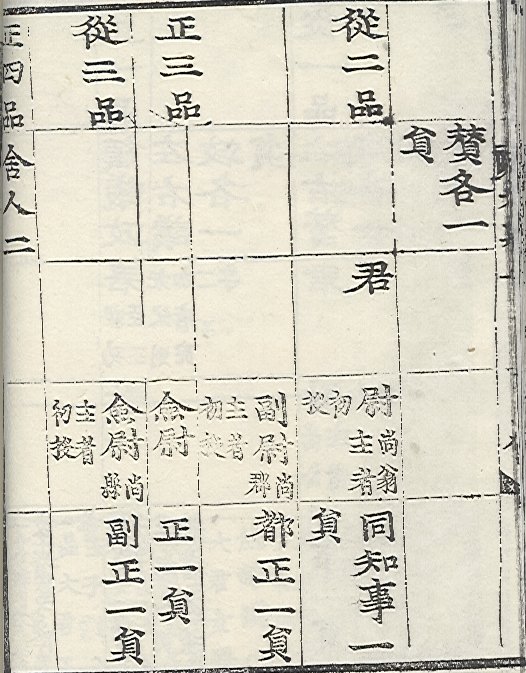 賛各一
貟
從二品
君
尉尚翁主者
初授
同知事一
貟
正三品
副尉尚郡
主者初授
都正一貟
僉尉
正一貟
從三品
僉尉尚縣
主者初授
副正一貟
正四品
舍人二